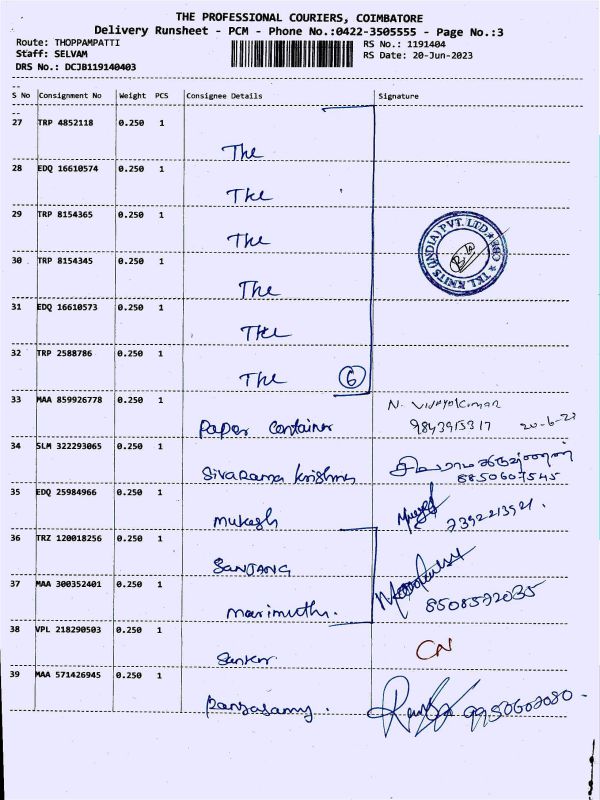 THE PROFESSIONAL COURIERS, COIMBATORE
Delivery Runsheet - PCM - Phone No.:0422-3505555 - Page No.:3
Route: THOPPAMPATTI RS No.: 1191404
Staff: SELVAM RS Date: 20-Jun-2023
DRS No.: DCJB119140403
S No Consignment No Weight PCS Consignee Details Signature
27 TRP 4852118 0.250 1
28 EDQ 16610574 0.250 1
29 TRP 8154365 0.250 1
30 TRP 8154345 0.250 1
TKL KNITS (INDIA) PVT. LTD. CBE
31 EDQ 16610573 0.250 1
32 TRP 2588786 0.250 1
6
33 MAA 859926778 0.250 1 Paper Container N. Vijayakumar
9843915317 20-6-23
34 SLM 322293065 0.250 1 Sivarama Krishnan
8850607545
35 EDQ 25984966 0.250 1 Mukesh
7392213921.
36 TRZ 120018256 0.250 1
37 MAA 300352401 0.250 1 Marimuthu.
8508572035
38 VPL 218290503 0.250 1 CN
39 MAA 571426945 0.250 1 Rangasamy.